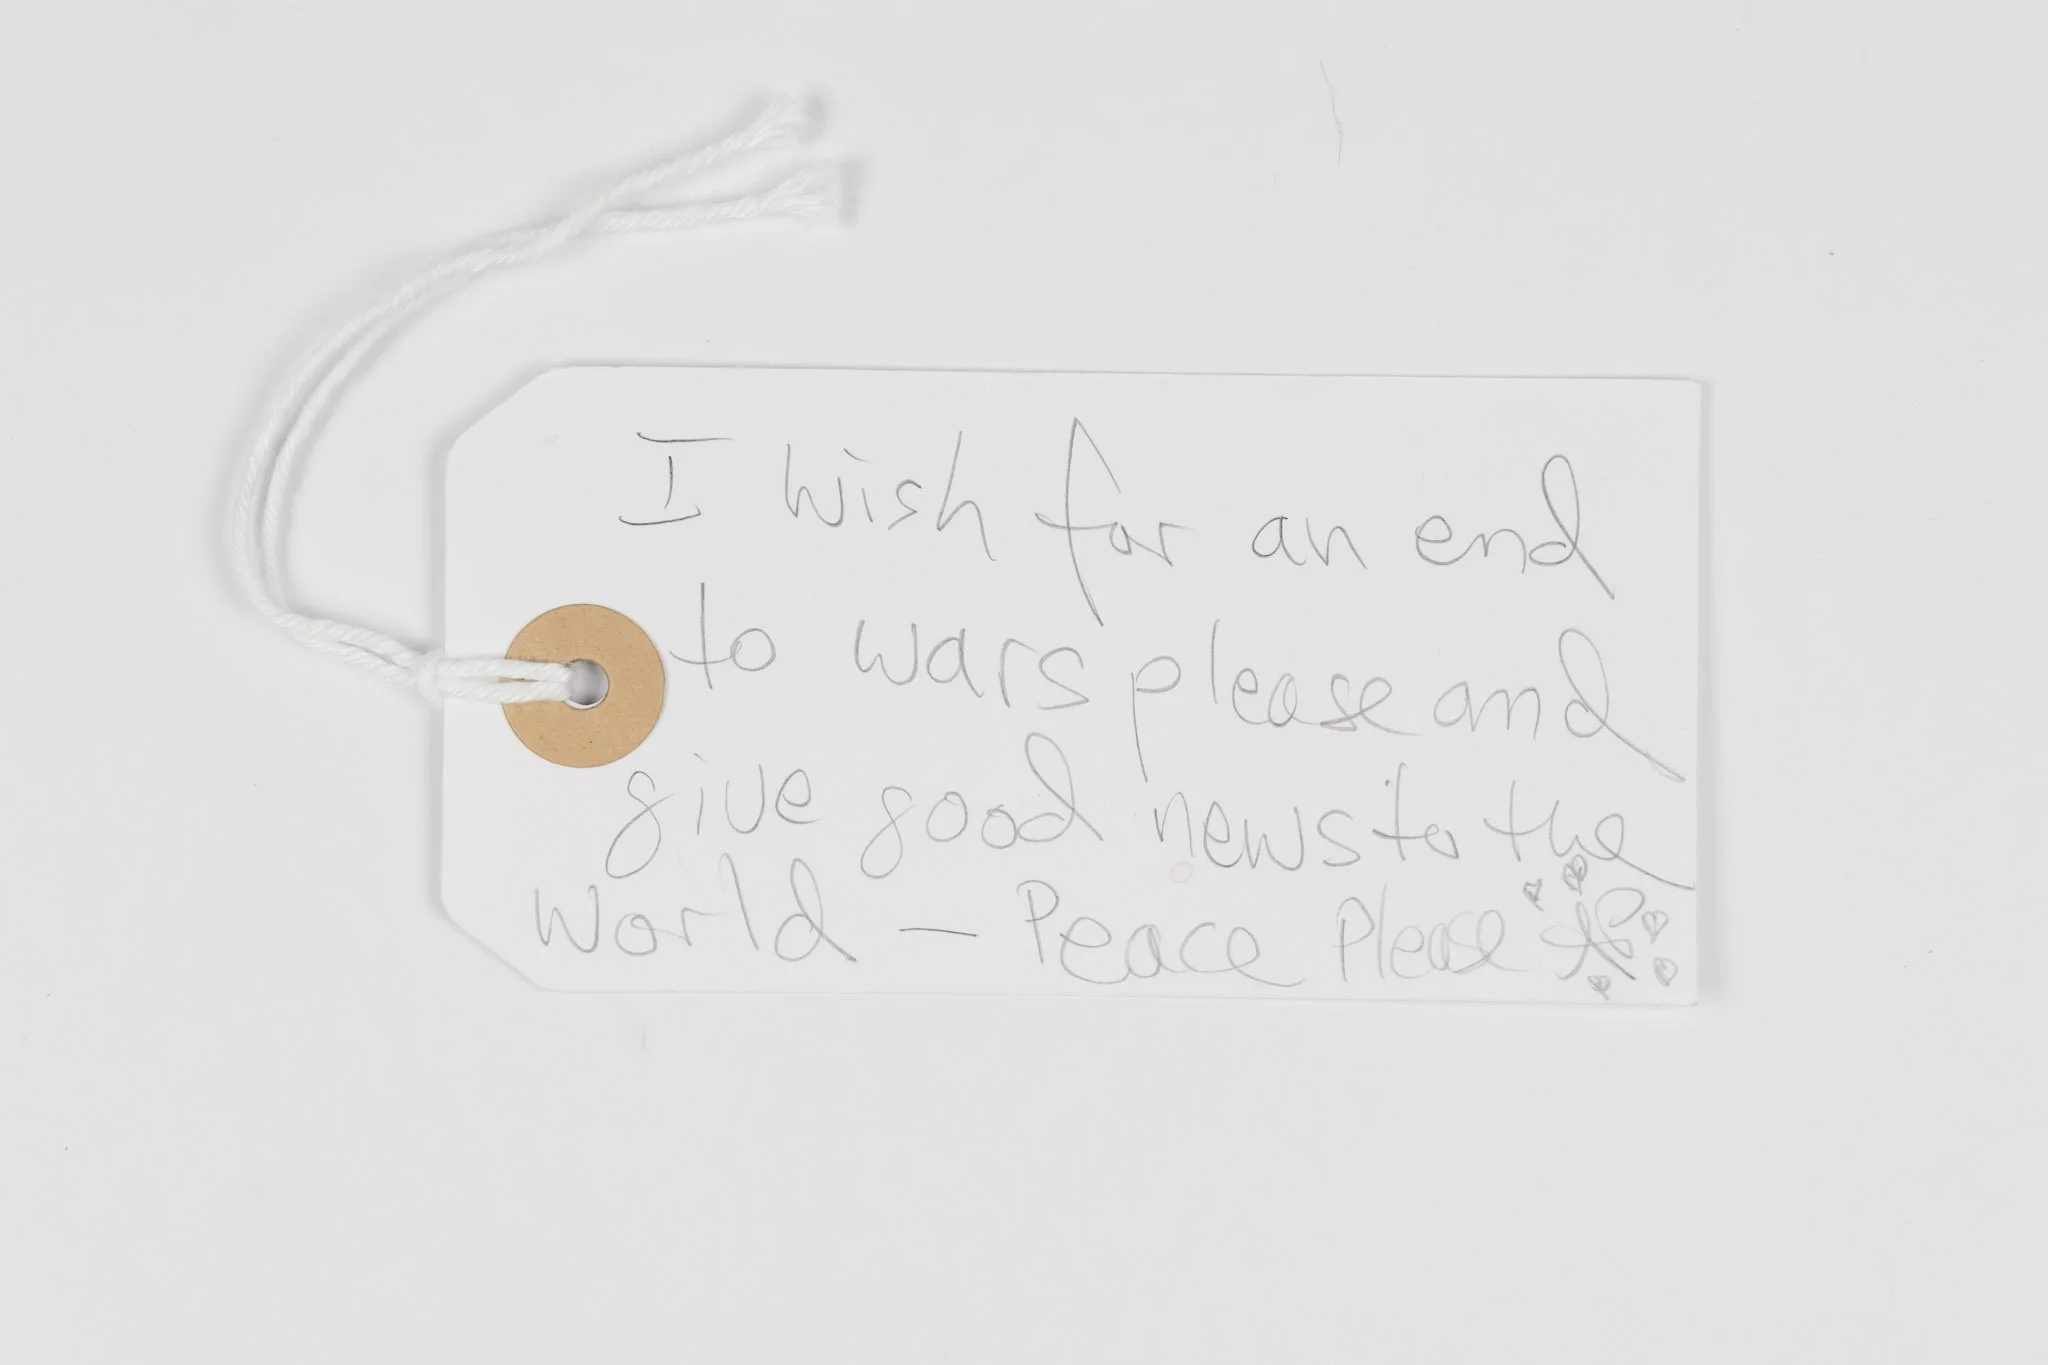 I wish for an end
to wars please and
give good news to the
World — Peace Please